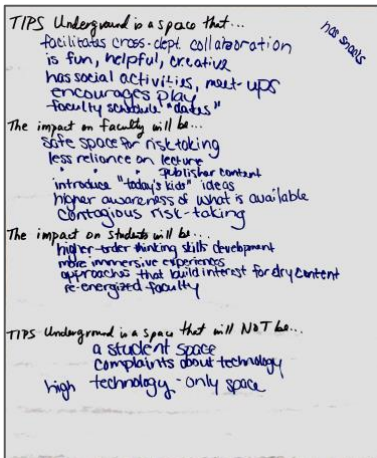 TIPS Underground is a space that...
has snacks
facilitates cross-dept. collaboration
is fun, helpful, creative
has social activities, meet-ups
encourages play
faculty schedule "dates"
The impact on faculty will be...
safe space for risk taking
less reliance on lecture
" " " publisher content
introduce "today's kids" ideas
higher awareness of what is available
contagious risk-taking
The impact on students will be...
higher-order thinking skills development
more immersive experiences
approaches that build interest for dry content
re-energized faculty
TIPS Underground is a space that will NOT be...
a student space
complaints about technology
high technology-only space